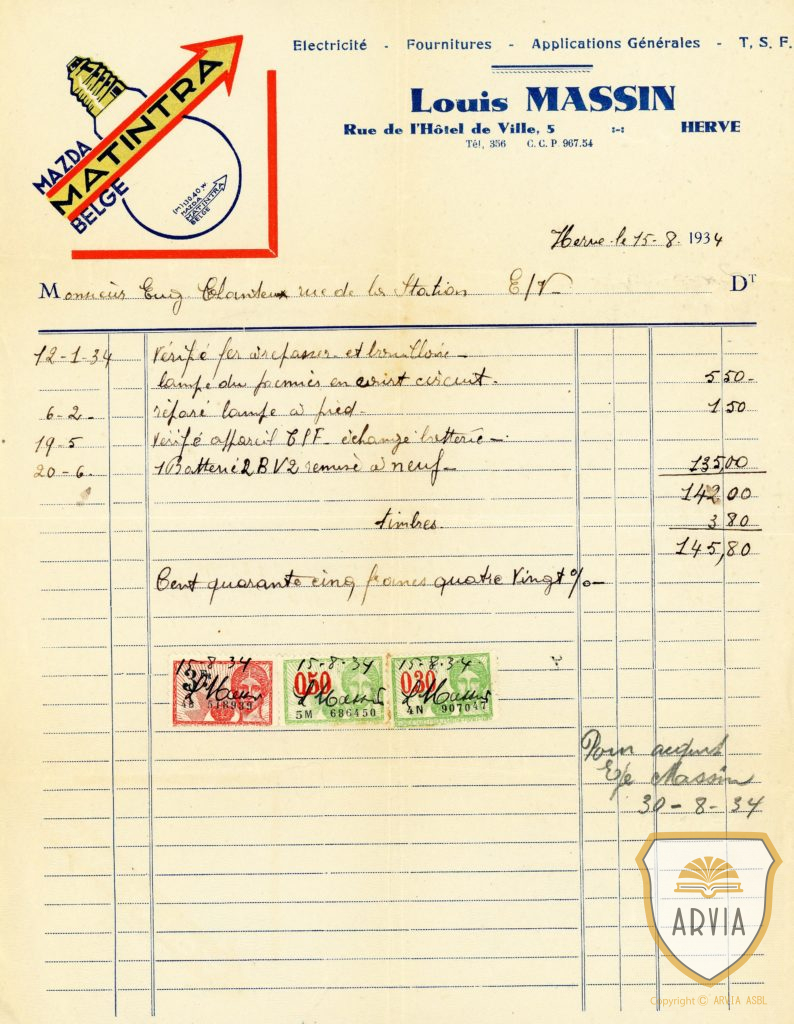 Electricité - Fournitures - Applications Générales - T. S. F.
Louis MASSIN
Rue de l'Hôtel de Ville, 5 :-: HERVE
Tél. 356 C. C. P. 967.54
MAZDA
MATINTRA
BELGE
MAZDA
MATINTRA
BELGE
Herve le 15-8. 1934
Monsieur Eug. rue de la Station E/V DT
12-1-34 Vérifié fer à repasser et bouilloire -
lampe du en court circuit. 5 50 -
6-2 - réparé lampe à pied - 1 50
19-5 Vérifié appareil TSF échange batterie -
20-6. 1 Batterie 2BV2 remise à neuf - 135,00
142 00
timbres 3 80
145,80
Cent quarante cinq francs quatre vingt %-
15-8-34 15-8-34 15-8-34
3F 0F50 0F30
L Massin L Massin L Massin
518939 5M 686450 4N 907047
Pour acquit
Massin
30-8-34
ARVIA
Copyright © ARVIA ASBL